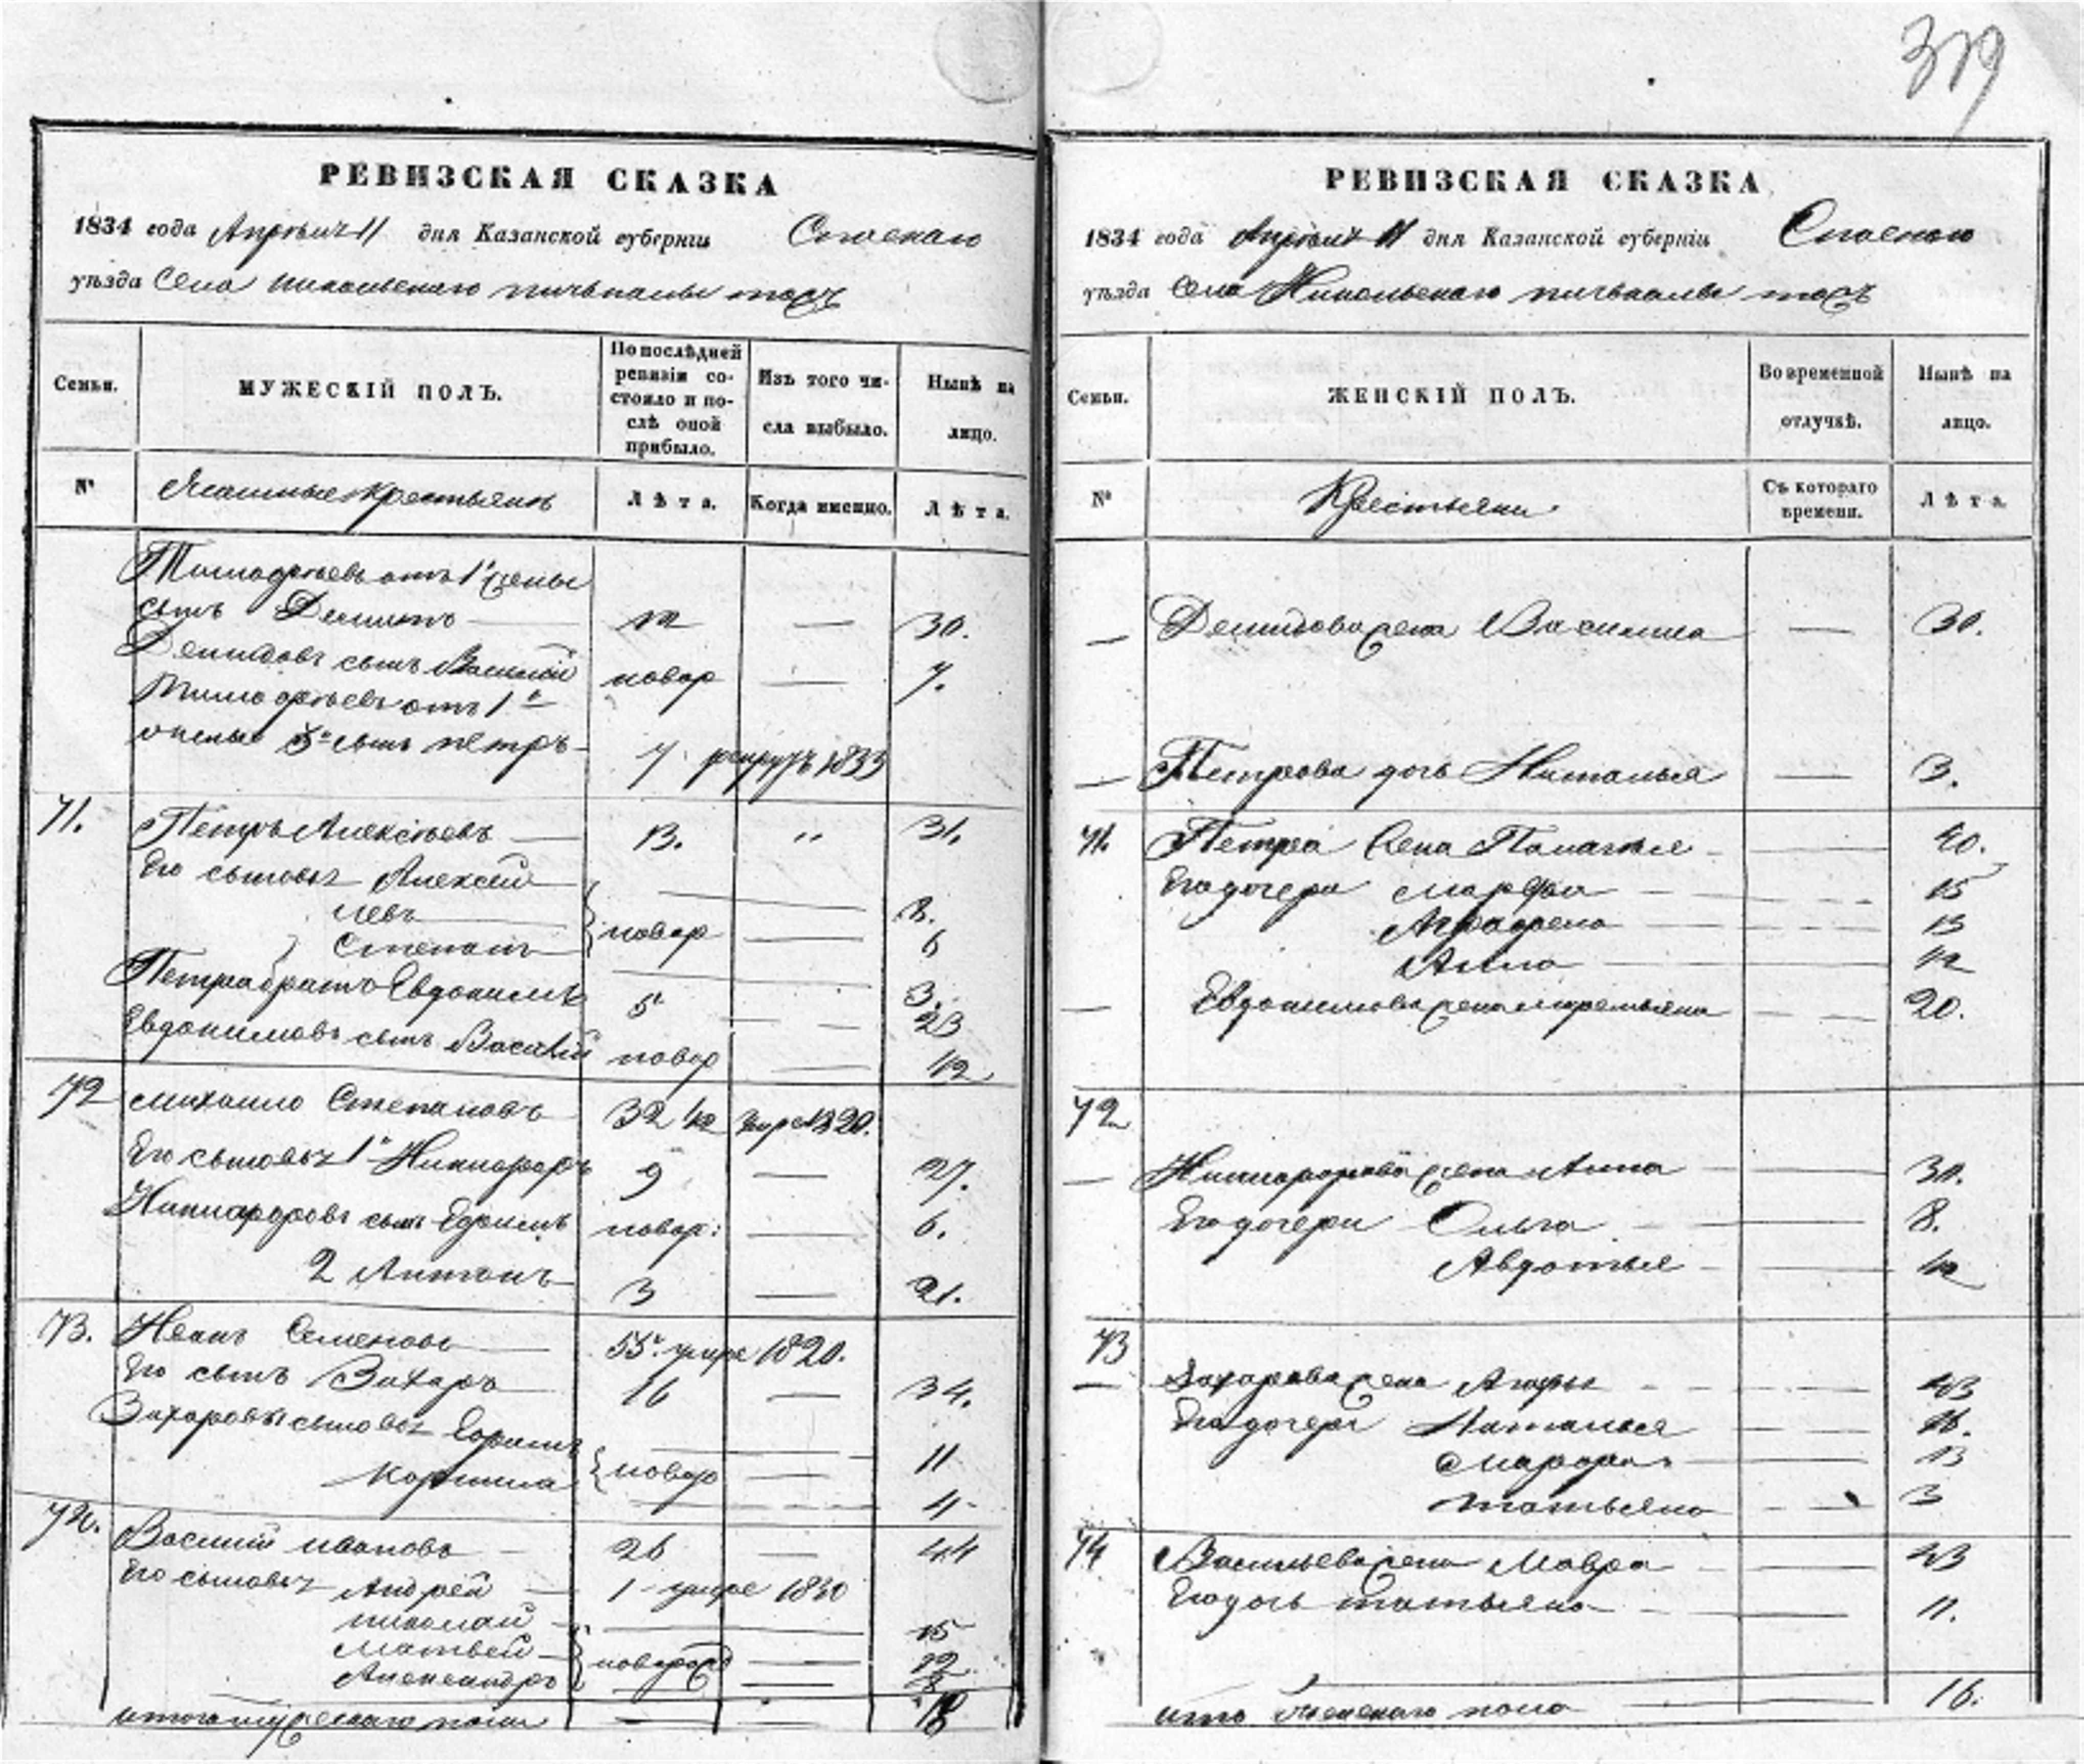 319
РЕВИЗСКАЯ СКАЗКА
1834 года Апреля 11 дня Казанской губерніи Спаскаго
уѣзда Села Никольскаго тожъ
Семьи.
МУЖЕСКІЙ ПОЛЪ.
По послѣдней ревизіи состояло и послѣ оной прибыло.
Изъ того числа выбыло.
Нынѣ на лицо.
№
Ясашные крестьяне
Лѣта.
Когда именно.
Лѣта.
Тимофеевъ отъ 1й жены
сынъ Демидъ — 30.
Демидовъ сынъ Василій новор — 7.
Тимофеевъ отъ 1й
жены 3й сынъ Петръ 7 рекрутъ 1833
71. Петръ Алексѣевъ 13. " 31.
Его сыновья Алексей — 8.
Левъ новор — 6
Степанъ — 3.
Петра братъ Евдокимъ 5 — 23
Евдокимовъ сынъ Василій новор — 1/2
72 Михайло Степановъ 32 1/2 умре 1820.
Его сыновья 1й Никифоръ 9 — 27.
Никифоровъ сынъ Ефимъ новор: — 6.
2 Антонъ 3 — 21.
73. Иванъ Семеновъ 55. умре 1820.
Его сынъ Захаръ 16 — 34.
Захаровы сыновья Ефимъ — 11
Корнила новор — 4
74. Василій Ивановъ 26 — 44
Его сыновья Андрей 1 умре 1830
Николай — 15
Матвей новорож —
Александръ —
Итого мужескаго пола — —
РЕВИЗСКАЯ СКАЗКА
1834 года Апреля 11 дня Казанской губерніи Спаскаго
уѣзда Села Никольскаго тожъ
Семьи.
ЖЕНСКІЙ ПОЛЪ.
Во временной отлучкѣ.
Нынѣ на лицо.
№
Крестьяни
Съ котораго времени.
Лѣта.
— Демидова жена Василиса — 30.
— Петрова дочь Наталья — 3.
71. Петра жена Пелагея — 40.
Его дочери Марфа — 15
Аграфена — 13
Анна — 1/2
— Евдокимова жена Маремьяна — 20.
72
— Никифорова жена Анна — 30.
Его дочери Ольга — 8.
Авдотья — 1/2
73
— Захарова жена — 43
Его дочери Наталья — 16.
Марфа — 13
Татьяна — 3
74 Васильева жена Мавра — 43
Его дочь Татьяна — 11.
Итого женскаго пола — 16.